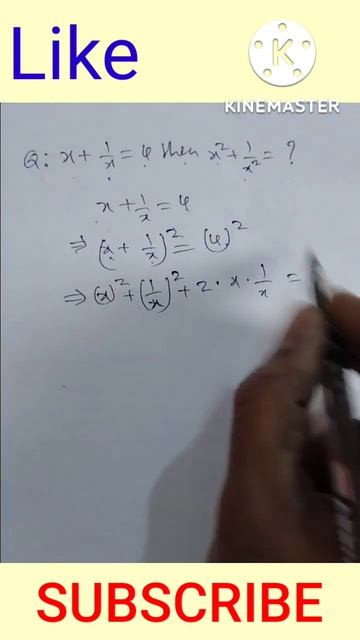 Like
K
KINEMASTER
Q: x + 1/x = 4 then x² + 1/x² = ?
x + 1/x = 4
⇒ (x + 1/x)² = (4)²
⇒ (x)² + (1/x)² + 2 · x · 1/x =
SUBSCRIBE